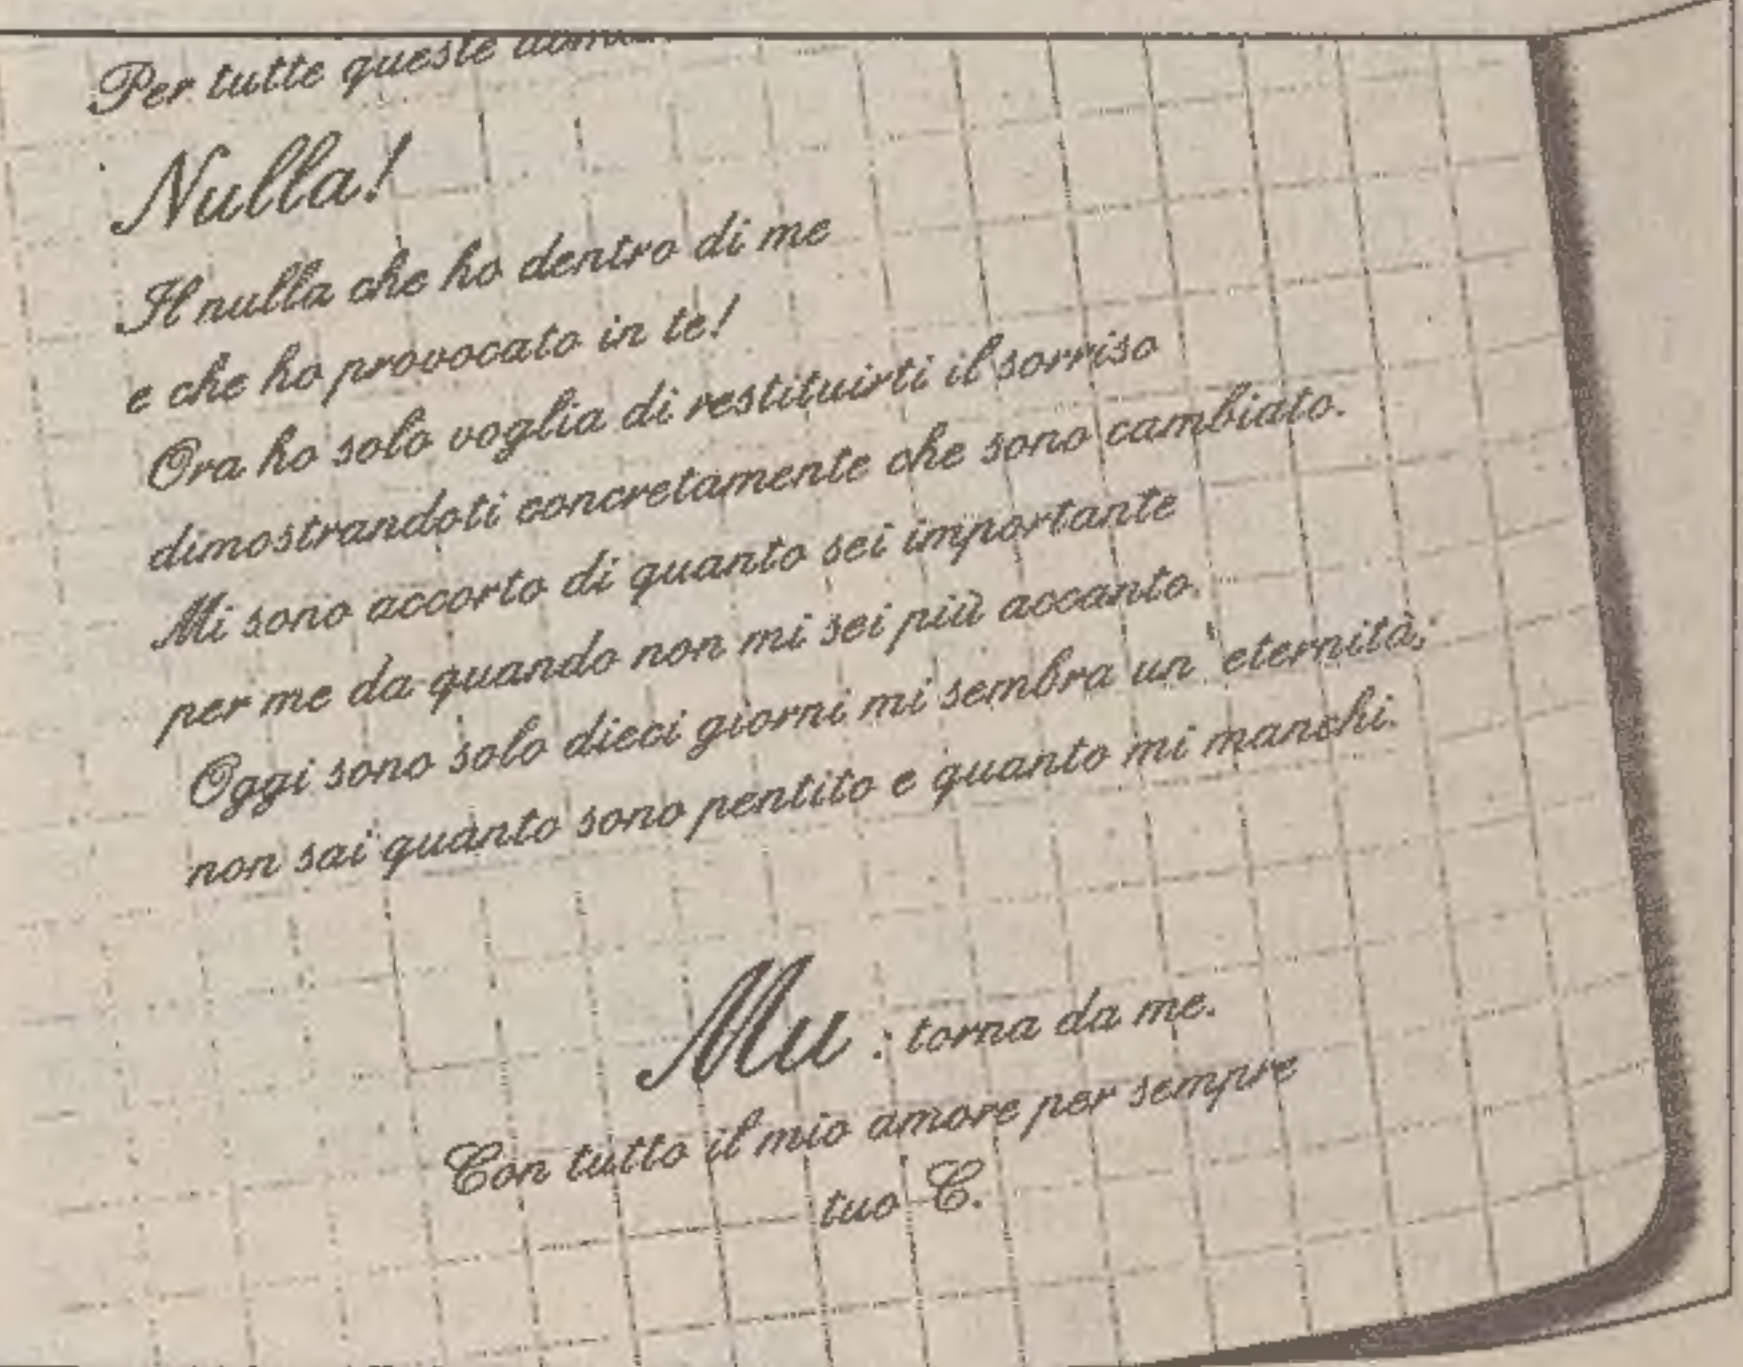 Per tutte queste
Nulla!
Il nulla che ho dentro di me
e che ho provocato in te!
Ora ho solo voglia di restituirti il sorriso
dimostrandoti concretamente che sono cambiato.
Mi sono accorto di quanto sei importante
per me da quando non mi sei più accanto.
Oggi sono solo dieci giorni mi sembra un' eternità;
non sai quanto sono pentito e quanto mi manchi.
Mu : torna da me.
Con tutto il mio amore per sempre
tuo C.